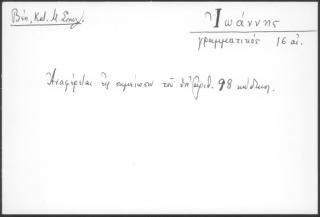 Βιν, Κωδ. Μ. Σιναχ.
Ἰωάννης
γραμματικός 16 αἰ.
Ἀναφέρεται εἰς σημείωσιν τοῦ ὑπ' ἀριθ. 98 κώδικος.